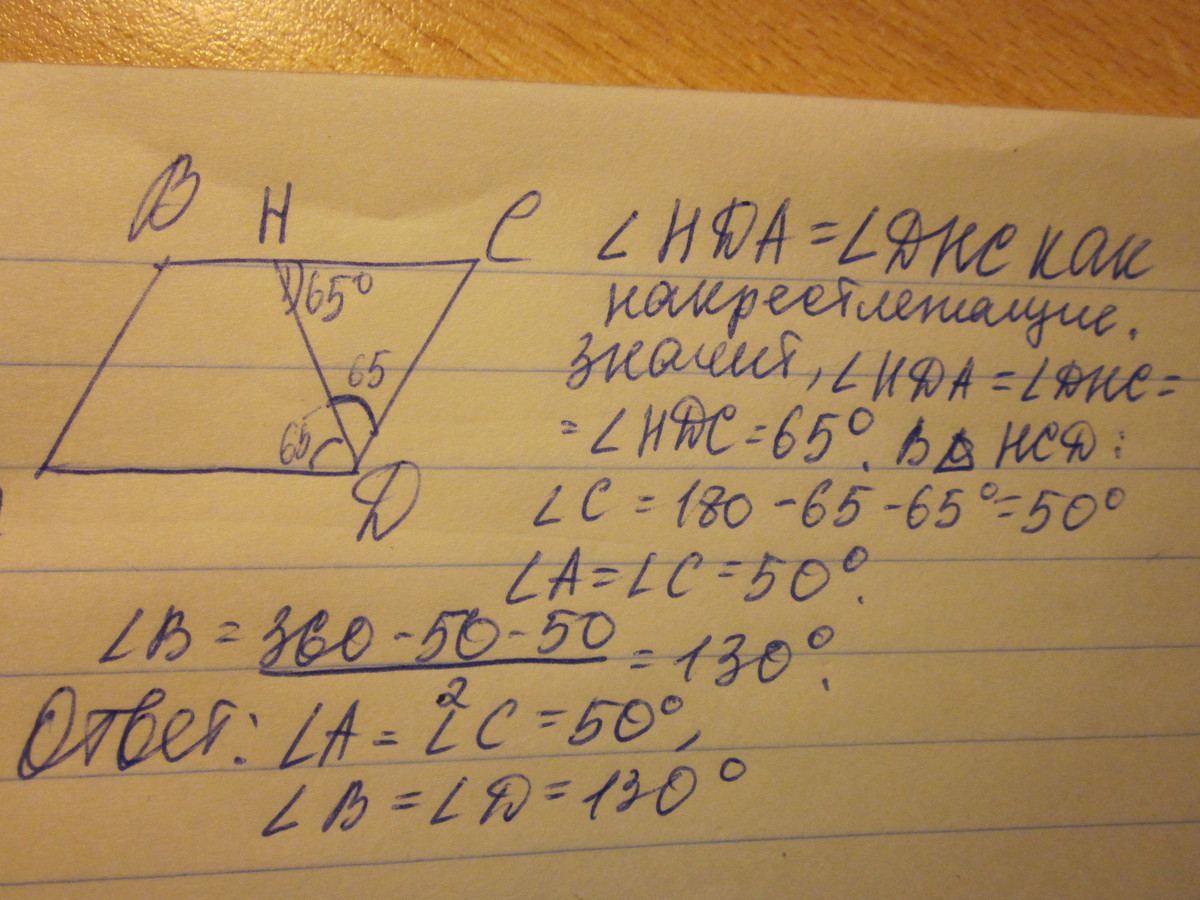 B H C
65°
65
65
D
∠HDA = ∠DHC как
накрестлежащие.
значит, ∠HDA = ∠DHC =
= ∠HDC = 65°. В △ HCD:
∠C = 180 - 65 - 65° = 50°
∠A = ∠C = 50°.
∠B = 360 - 50 - 50 = 130°.
2
Ответ: ∠A = ∠C = 50°,
∠B = ∠D = 130°